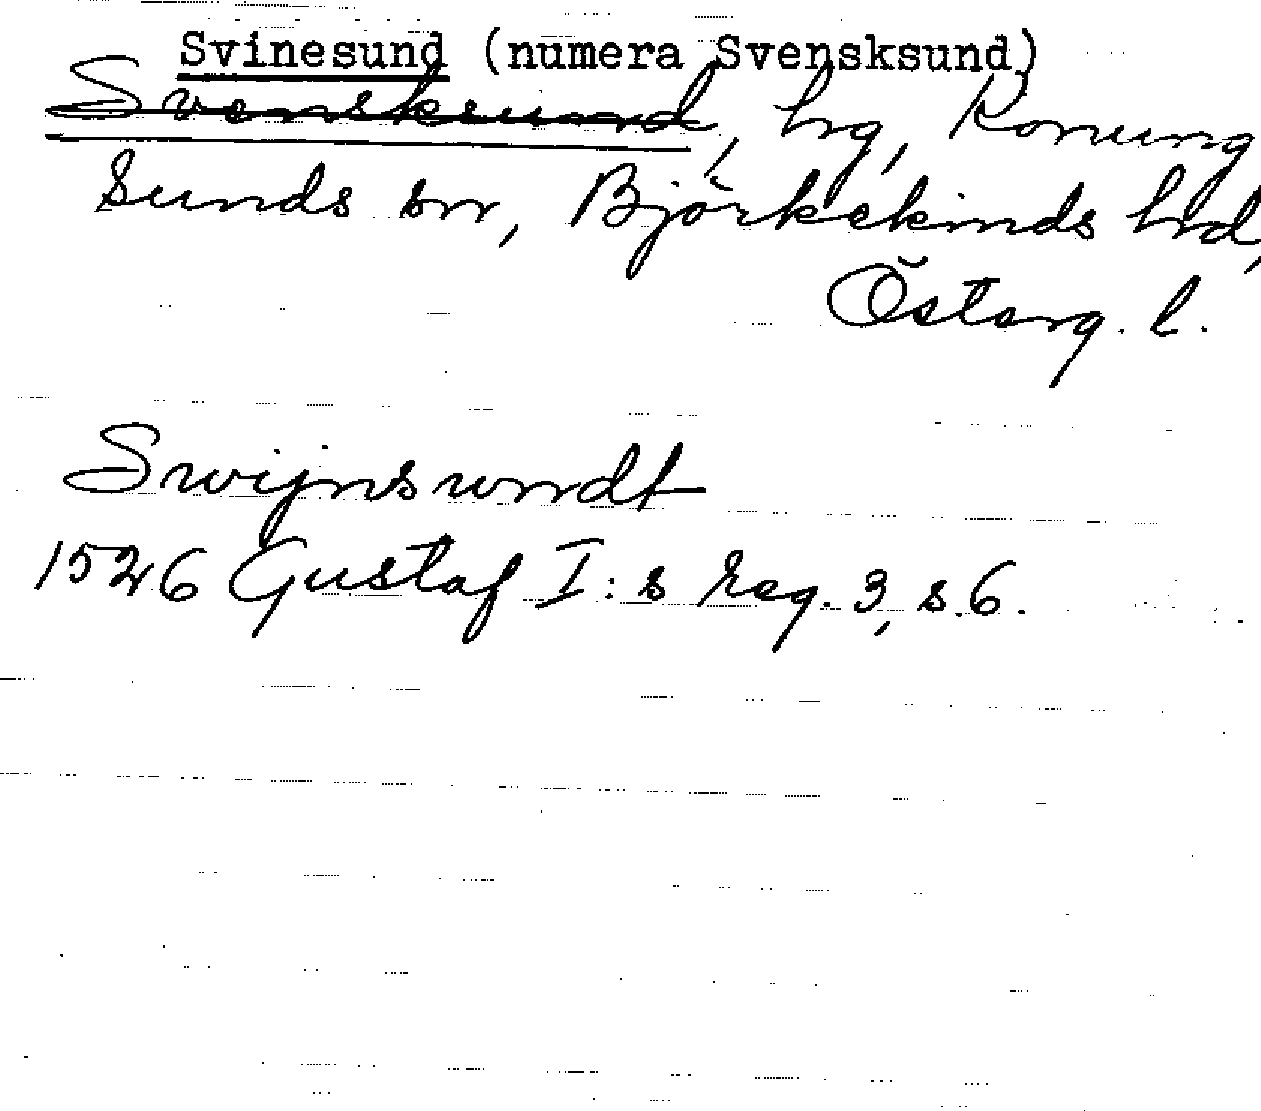 Svinesund (numera Svensksund)
Svensksund, hrg, Konung
sunds sn, Björkekinds hrd,
Österg. l.
Swijnswndt
1526 Gustaf I:s reg. 3, s. 6.